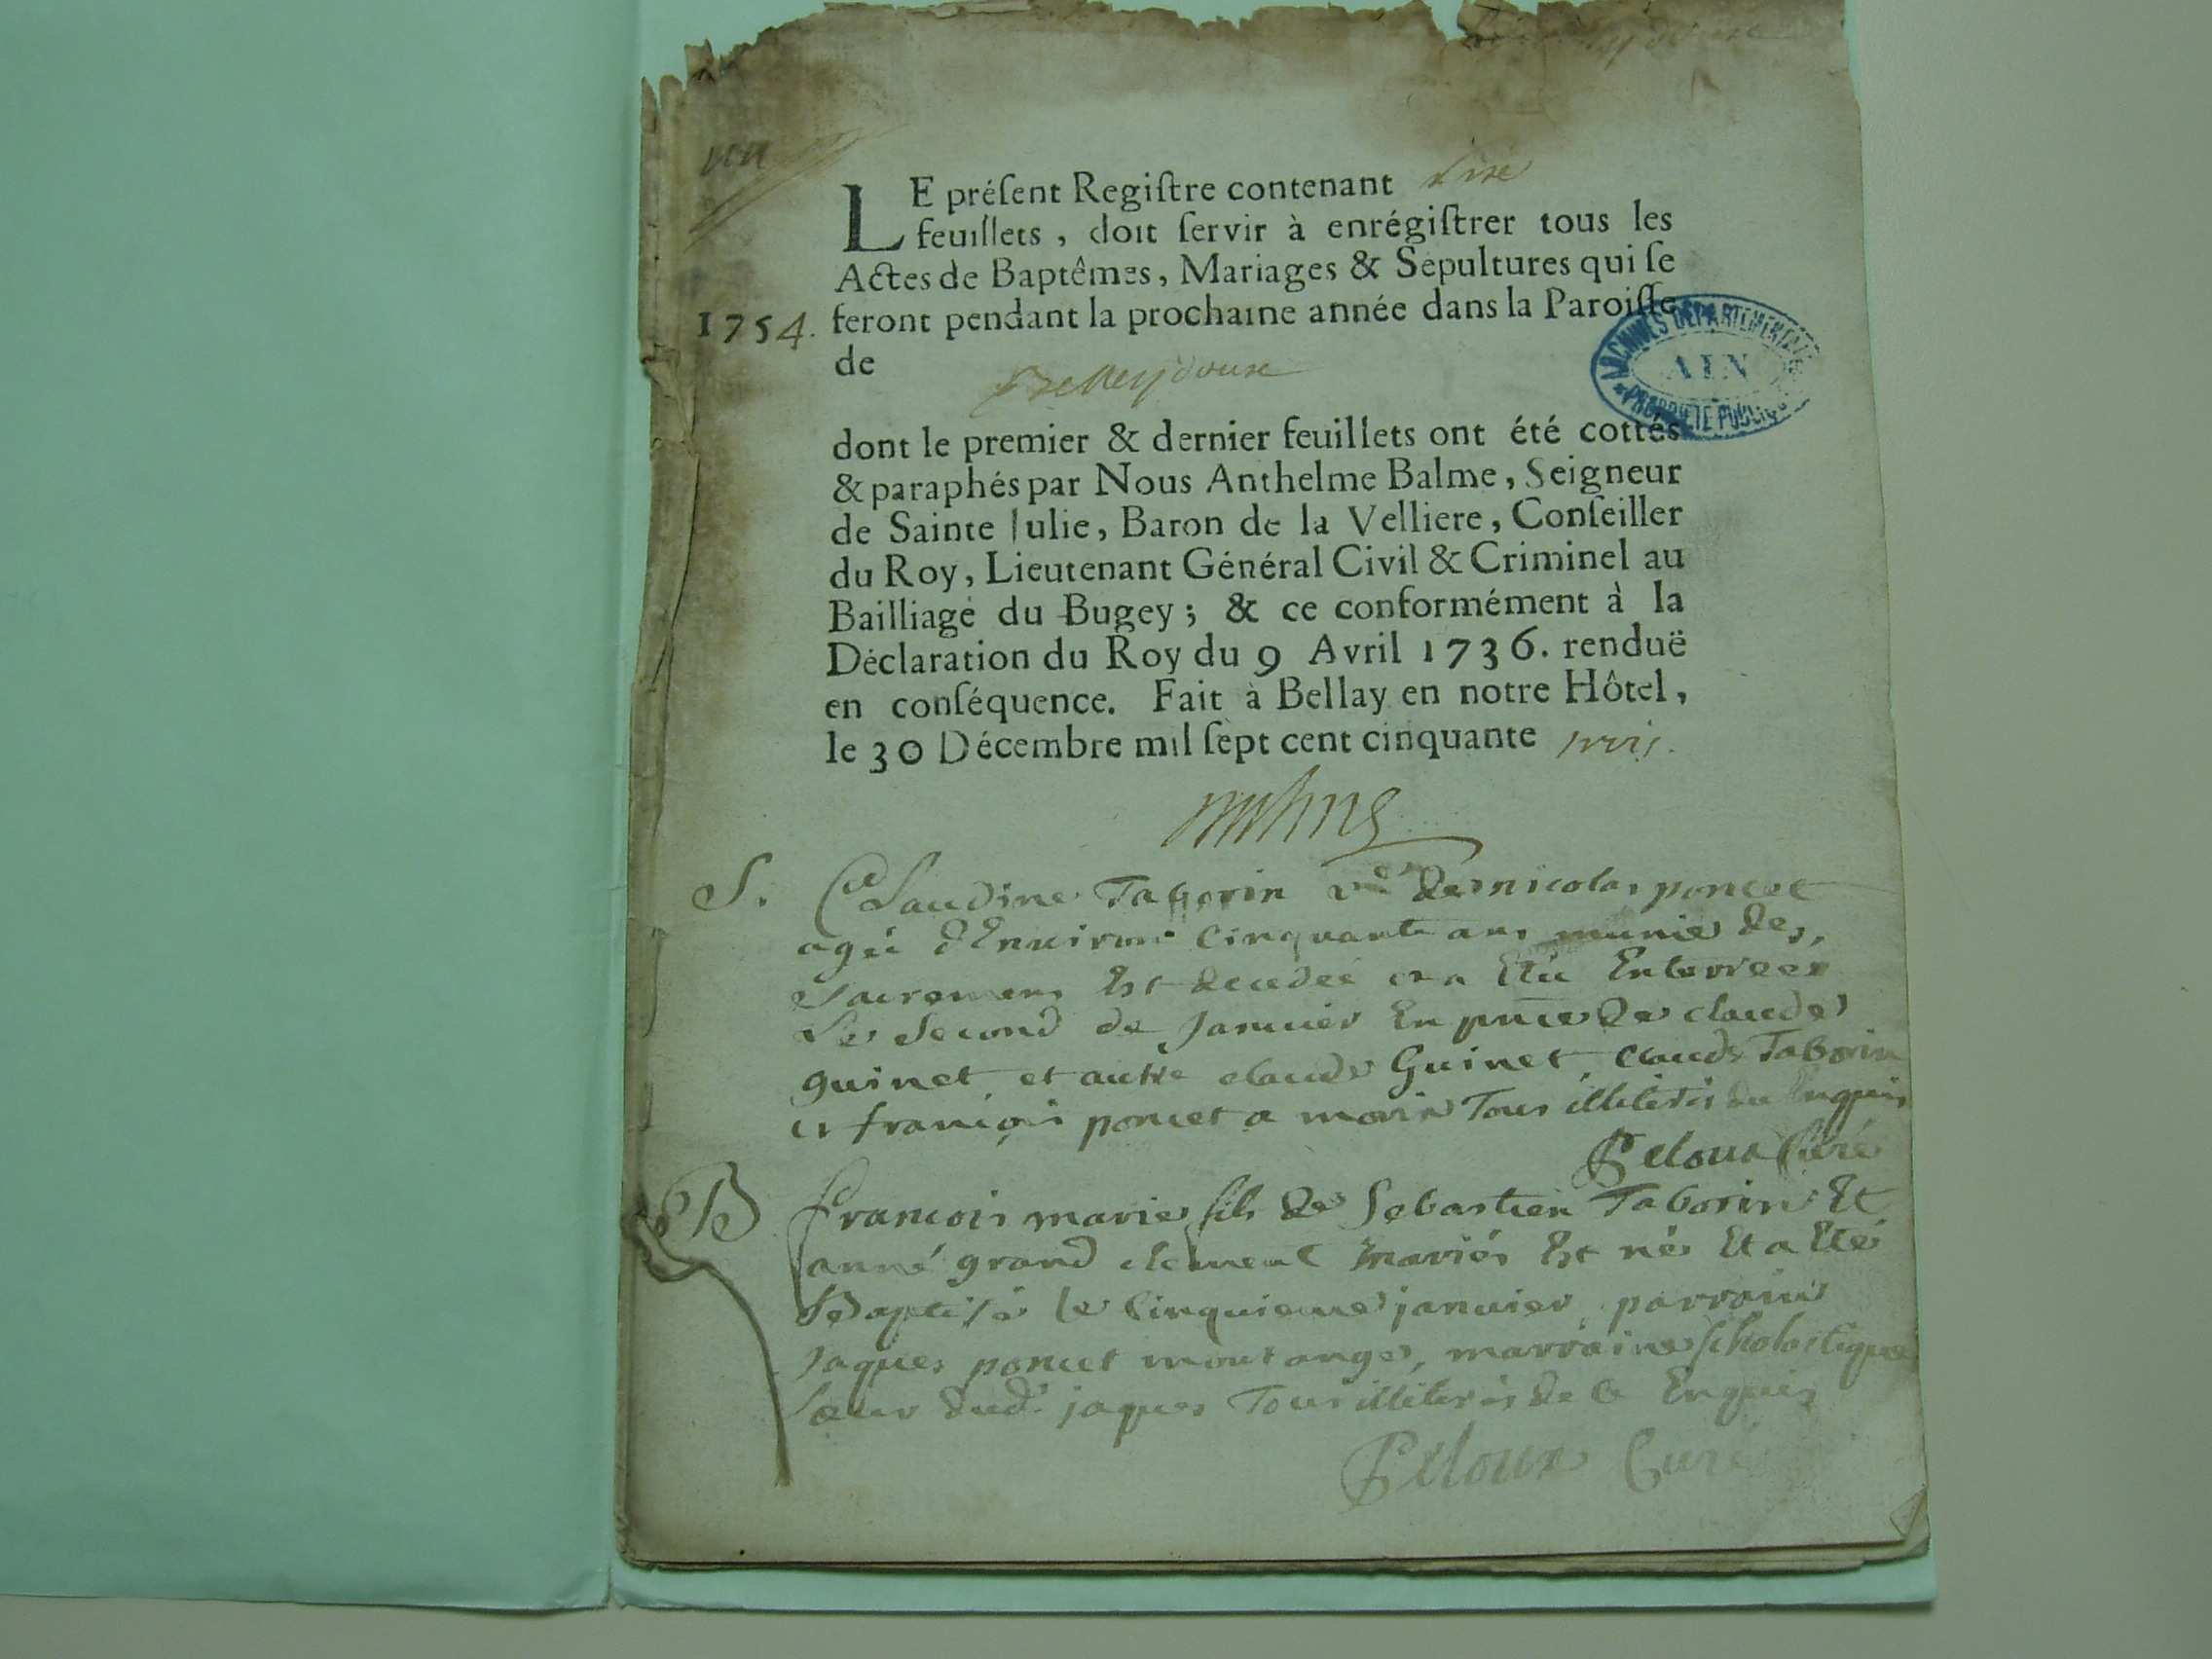 LE préſent Regiſtre contenant
feuillets, doit ſervir à enrégiſtrer tous les
Actes de Baptêmes, Mariages & Sepultures qui ſe
1754. feront pendant la prochaine année dans la Paroiſſe
de
Belleydoux
ARCHIVES DEPARTEMENTALES
AIN
PROPRIÉTÉ PUBLIQUE
dont le premier & dernier feuillets ont été cottés
& paraphés par Nous Anthelme Balme, Seigneur
de Sainte Julie, Baron de la Velliere, Conſeiller
du Roy, Lieutenant Général Civil & Criminel au
Bailliage du Bugey; & ce conformément à la
Déclaration du Roy du 9 Avril 1736. renduë
en conſéquence. Fait à Bellay en notre Hôtel,
le 30 Décembre mil ſept cent cinquante trois.
S. Claudine Taborin vᵉ de nicolas poncet
agée d'Environ Cinquante ans munie des
Sacremens Est decedée et a Eté Enterrée
Le Second de Janvier En pnce de claude
guinet et autre claude Guinet, claude Taborin
et françois poncet a morin Tous illiterés Enquis
Peloux Curé
B françois marie fils de Sebastien Taborin Et
anne grand clement mariés Est né Et a Eté
Baptisé le Cinquieme janvier, parrain
Jaques poncet montange, marraine scholastique
Sœur dud. jaques Tous illiterés de ce Enquis
Peloux Curé